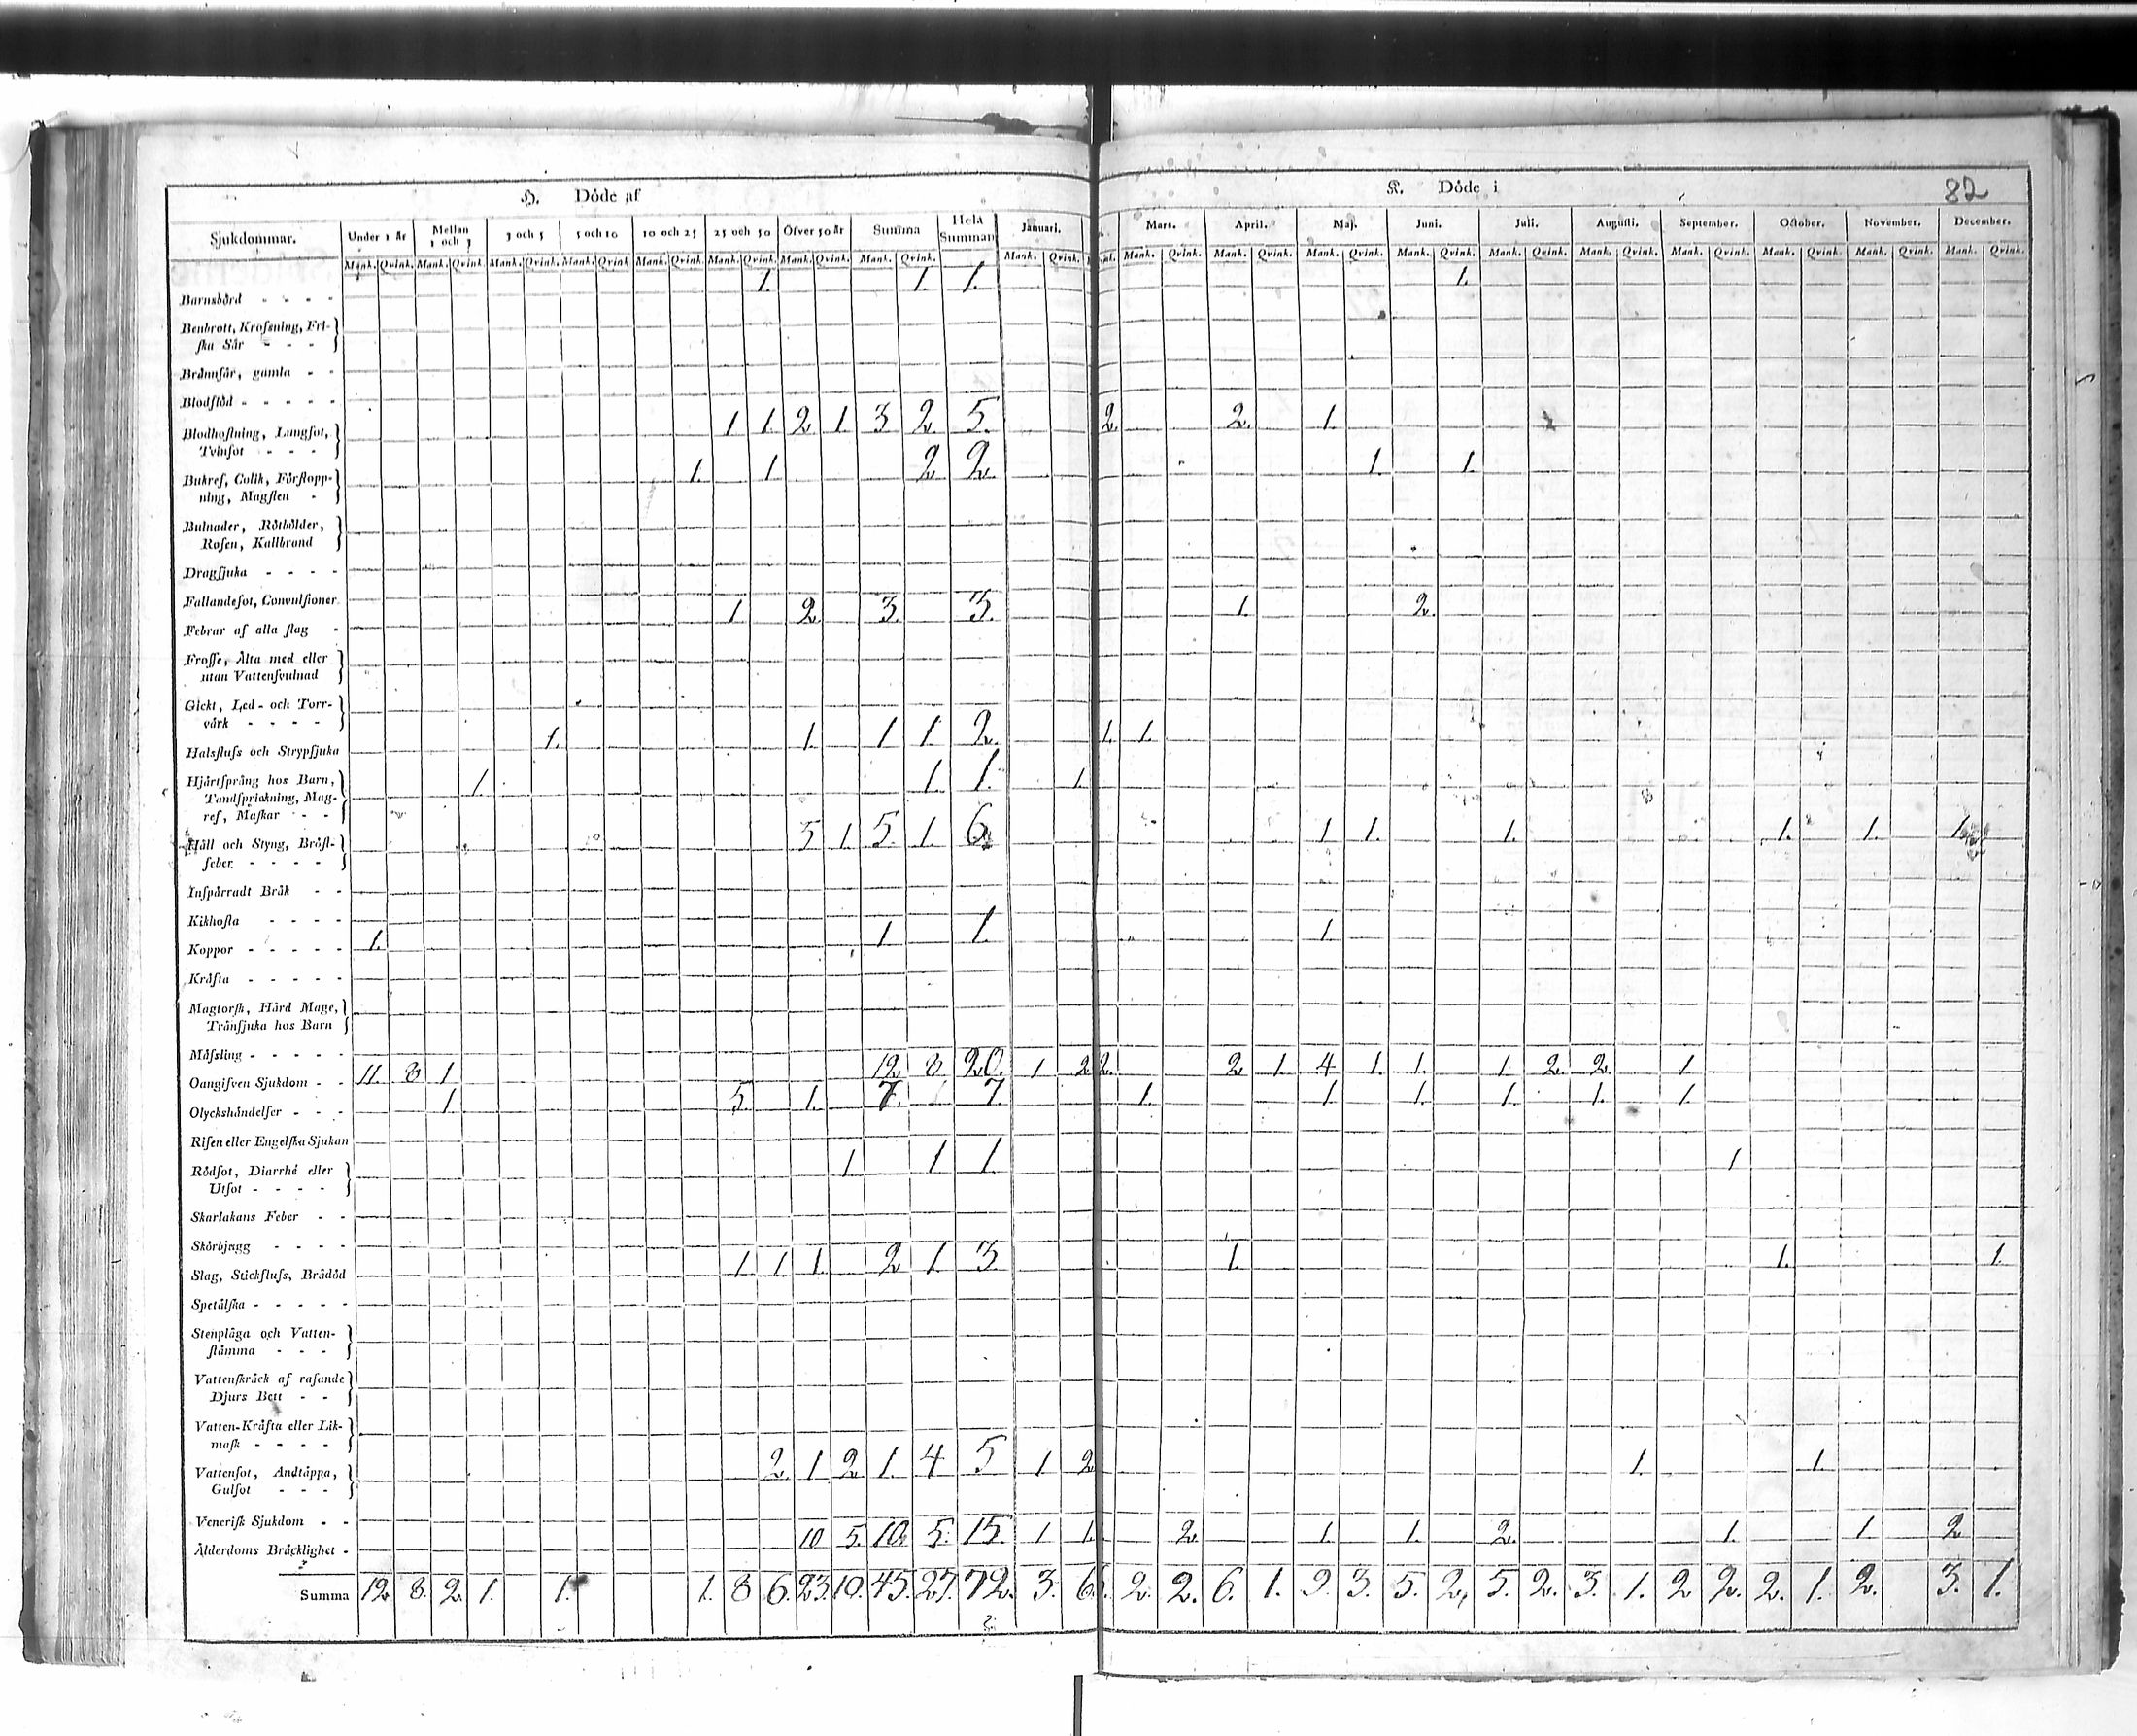 H. Döde af
K. Döde i
82
Sjukdommar. Under 1 år Mellan 1 och 3 3 och 5 5 och 10 10 och 25 25 och 50 Öfver 50 år Summa Hela Summan Januari. Mars. April. Maj. Juni. Juli. Augusti. September. October. November. December.
Mank. Qvink. Mank. Qvink. Mank. Qvink. Mank. Qvink. Mank. Qvink. Mank. Qvink. Mank. Qvink. Mank. Qvink. Mank. Qvink. Mank. Qvink. Mank. Qvink. Mank. Qvink. Mank. Qvink. Mank. Qvink. Mank. Qvink. Mank. Qvink. Mank. Qvink. Mank. Qvink. Mank. Qvink.
Barnsbörd - - - - 1. 1. 1. 1.
Benbrott, Krofsning, Fri-
ſka Sår - - -
Brännſår, gamla - -
Blodſtöd - - - - -
Blodhoſtning, Lungſot, 1 1. 2 1. 3 2. 5. 2. 2. 1.
Tvinſot - - -
Bukref, Colik, Förſtopp- 1. 1. 2 2. 1. 1.
ning, Magſten -
Bulnader, Rötbölder,
Roſen, Kallbrand
Dragſjuka - - - -
Fallandeſot, Convulſioner
Febrar af alla ſlag - 1. 2. 3. 3. 1. 2.
Froſſe, Älta med eller
utan Vattenſvulnad
Gickt, Led- och Torr-
värk - - - -
Halsfluſs och Strypſjuka 1. 1. 1 1. 2. 1. 1.
Hjärtſprång hos Barn, 1. 1. 1. 1.
Tandſprickning, Mag-
ref, Maſkar - -
Håll och Styng, Bröſt- 5 1. 5. 1. 6. 1 1. 1. 1. 1. 1.
feber - - - -
Inſpärradt Bråk - -
Kikhoſta - - - -
Koppor - - - - - 1. 1 1. 1.
Kräfta - - - - -
Magtorſk, Hård Mage,
Tränſjuka hos Barn
Mäſsling - - - - -
Oangifven Sjukdom - - 11. 8 1 12 8. 20. 1 2 2. 2 1 4 1. 1. 1 2. 2. 1
Olyckshändelſer - - - 1. 5. 1. 7. 7. 1. 1. 1. 1. 1. 1.
Riſen eller Engelſka Sjukan
Rödſot, Diarrhé eller 1 1 1. 1
Utſot - - - -
Skarlakans Feber - -
Skörbjugg - - - -
Slag, Stickfluſs, Brådöd 1. 1. 1. 2 1. 3. 1. 1. 1.
Spetälſka - - - - -
Stenplåga och Vatten-
ſtämma - - -
Vattenſkräck af raſande
Djurs Bett - -
Vatten-Kräfta eller Lik-
maſk - - - -
Vattenſot, Andtäppa, 2. 1 2 1. 4 5 1 2 1. 1.
Gulſot - - -
Veneriſk Sjukdom - -
Ålderdoms Bräcklighet - 10 5. 10. 5. 15. 1 1. 2. 1. 1. 2. 1. 1 2
Summa 12 8. 2. 1. 1. 1. 8 6. 23. 10. 45. 27. 72. 3. 6. 2. 2. 6. 1. 9. 3. 5. 2. 5. 2. 3. 1. 2 2. 2. 1. 2. 3. 1.